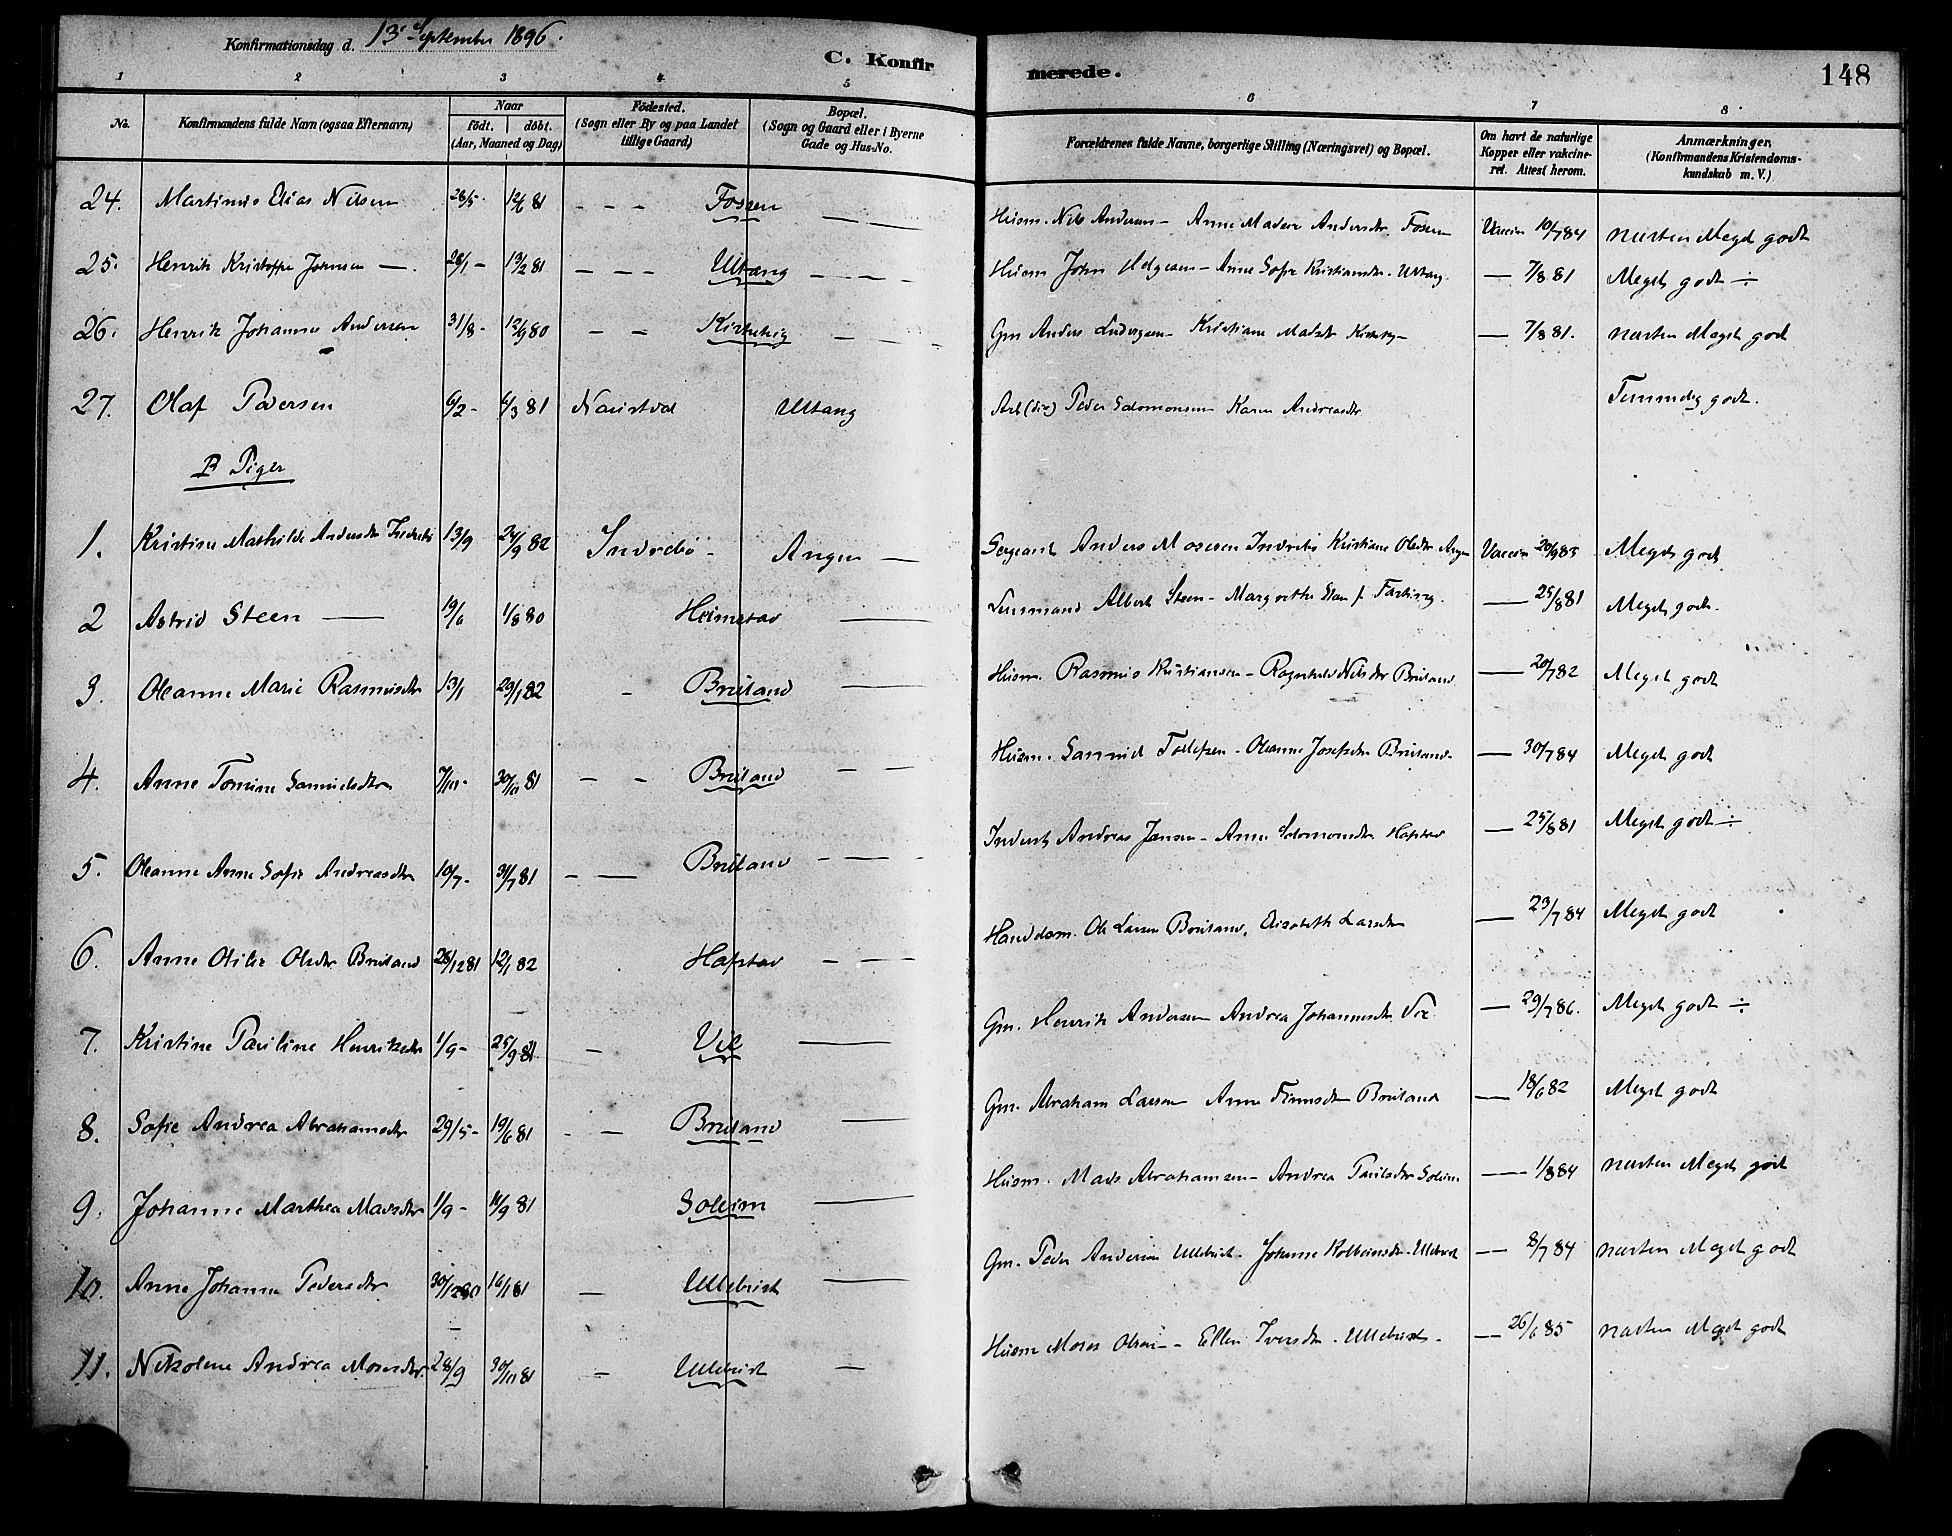 Konfirmationsdag d. 13 September 1896.
C. Konfirmerede.
148
1 2 3 4 5 6 7 8
No.
Konfirmandens fulde Navn (ogsaa Efternavn)
Naar
født. døbt.
(Aar, Maaned og Dag)
Fødested.
(Sogn eller By og paa Landet
tillige Gaard)
Bopæl.
(Sogn og Gaard eller i Byerne
Gade og Hus-No.
Forældrenes fulde Navne, borgerlige Stilling (Næringsvei) og Bopæl.
Om havt de naturlige
Kopper eller vakcine-
ret. Attest herom.
Anmærkninger.
(Konfirmandens Kristendoms-
kundskab m. V.)
24. Martinus Elias Nilsen 28/5 - 12/6 81 - - - Fossen - - Husm. Nils Andersen - Anne Madsdr Andersdr. Fossen Vaccin 10/7 84 næsten Meget godt
25. Henrik Kristoffer Johnsen - 28/1 - 13/2 81 - - - Ultang - - - Husm John Helgesen - Anne Sofie Kristiansdr. Ultang. - 7/8 81 Meget godt ÷
26. Henrik Johannes Andersen 31/8 - 12/9 80 - - Kirkebig - - - Gm Anders Ludvigsen - Kristiane Madsdr - 7/8 81. næsten Meget god
27. Olaf Pedersen 6/2 - 6/3 81 Naustdal Ultang Arb (dix) Peder Salomonsen Karen Andreasdr Temmelig godt.
B Piger
1. Kristine Mathilde Andersdr Indrebø 13/9 24/9 82 Indrebø - Angen - Sergeant Anders Mosesen Indrebø Kristiane Olsdr Angen Vaccin 20/9 83 Meget godt
2 Astrid Steen - 19/6 1/8 80 Heimstad - Lensmand Albert Steen - Margrethe Steen f. - 25/8 81 Meget godt.
3. Oleanne Marie Rasmusdr 13/1 29/1 82 - Bruland - Husm. Rasmus Kristiansen - Ragnhild Nilsdr Bruland - 20/7 82 Meget godt
4. Anne Tomine Samuelsdtr 7/10 - 30/10 81 - - Bruland - - Husm. Samuel Tollefsen - Oleanne Josefsdr Bruland - 30/7 84 Meget godt
5. Oleanne Anne Sofie Andreasdtr 10/7 - 31/7 81 - - Bruland - - - Inderst Andreas Jansen - Anne Salomonsdtr Hafstad - 25/8 81 Meget godt ÷
6. Anne Otilie Olsdtr Bruland 28/12 81 12/1 82 Hafstad - - - Handelsm. Ole Larsen Bruland, Elisabeth Larsdtr - 23/7 84 Meget godt
7. Kristine Pauline Henriksdtr 1/9 - 25/9 81 - Vie - Gm. Henrik Andersen Andrea Johannesdtr Vie - 29/7 86. Meget godt ÷
8. Sofie Andrea Abrahamsdtr 29/5 - 19/6 81 - - Bruland - Gm. Abraham Larsen Anne Finnsdtr Bruland - 18/6 82 Meget godt
9. Johanne Marthea Madsdtr 1/9 - 11/9 81 Soleim - Husm. Mads Abrahamsen - Andrea Paulsdtr Soleim - 1/8 84 næsten Meget godt
10. Anne Johanne Pedersdtr 30/12 80 16/1 81 - Ullebust - Gm. Peder Andersen Ullebust - Johanne Kolbeinsdtr Ullebust - 8/7 84 næsten Meget godt
11. Nikoline Andrea Mosesdtr. 28/9 30/10 81 - Ullebust - Husm Moses Olsen - Ellen Iversdtr. Ullebust - - 26/6 85 næsten Meget godt